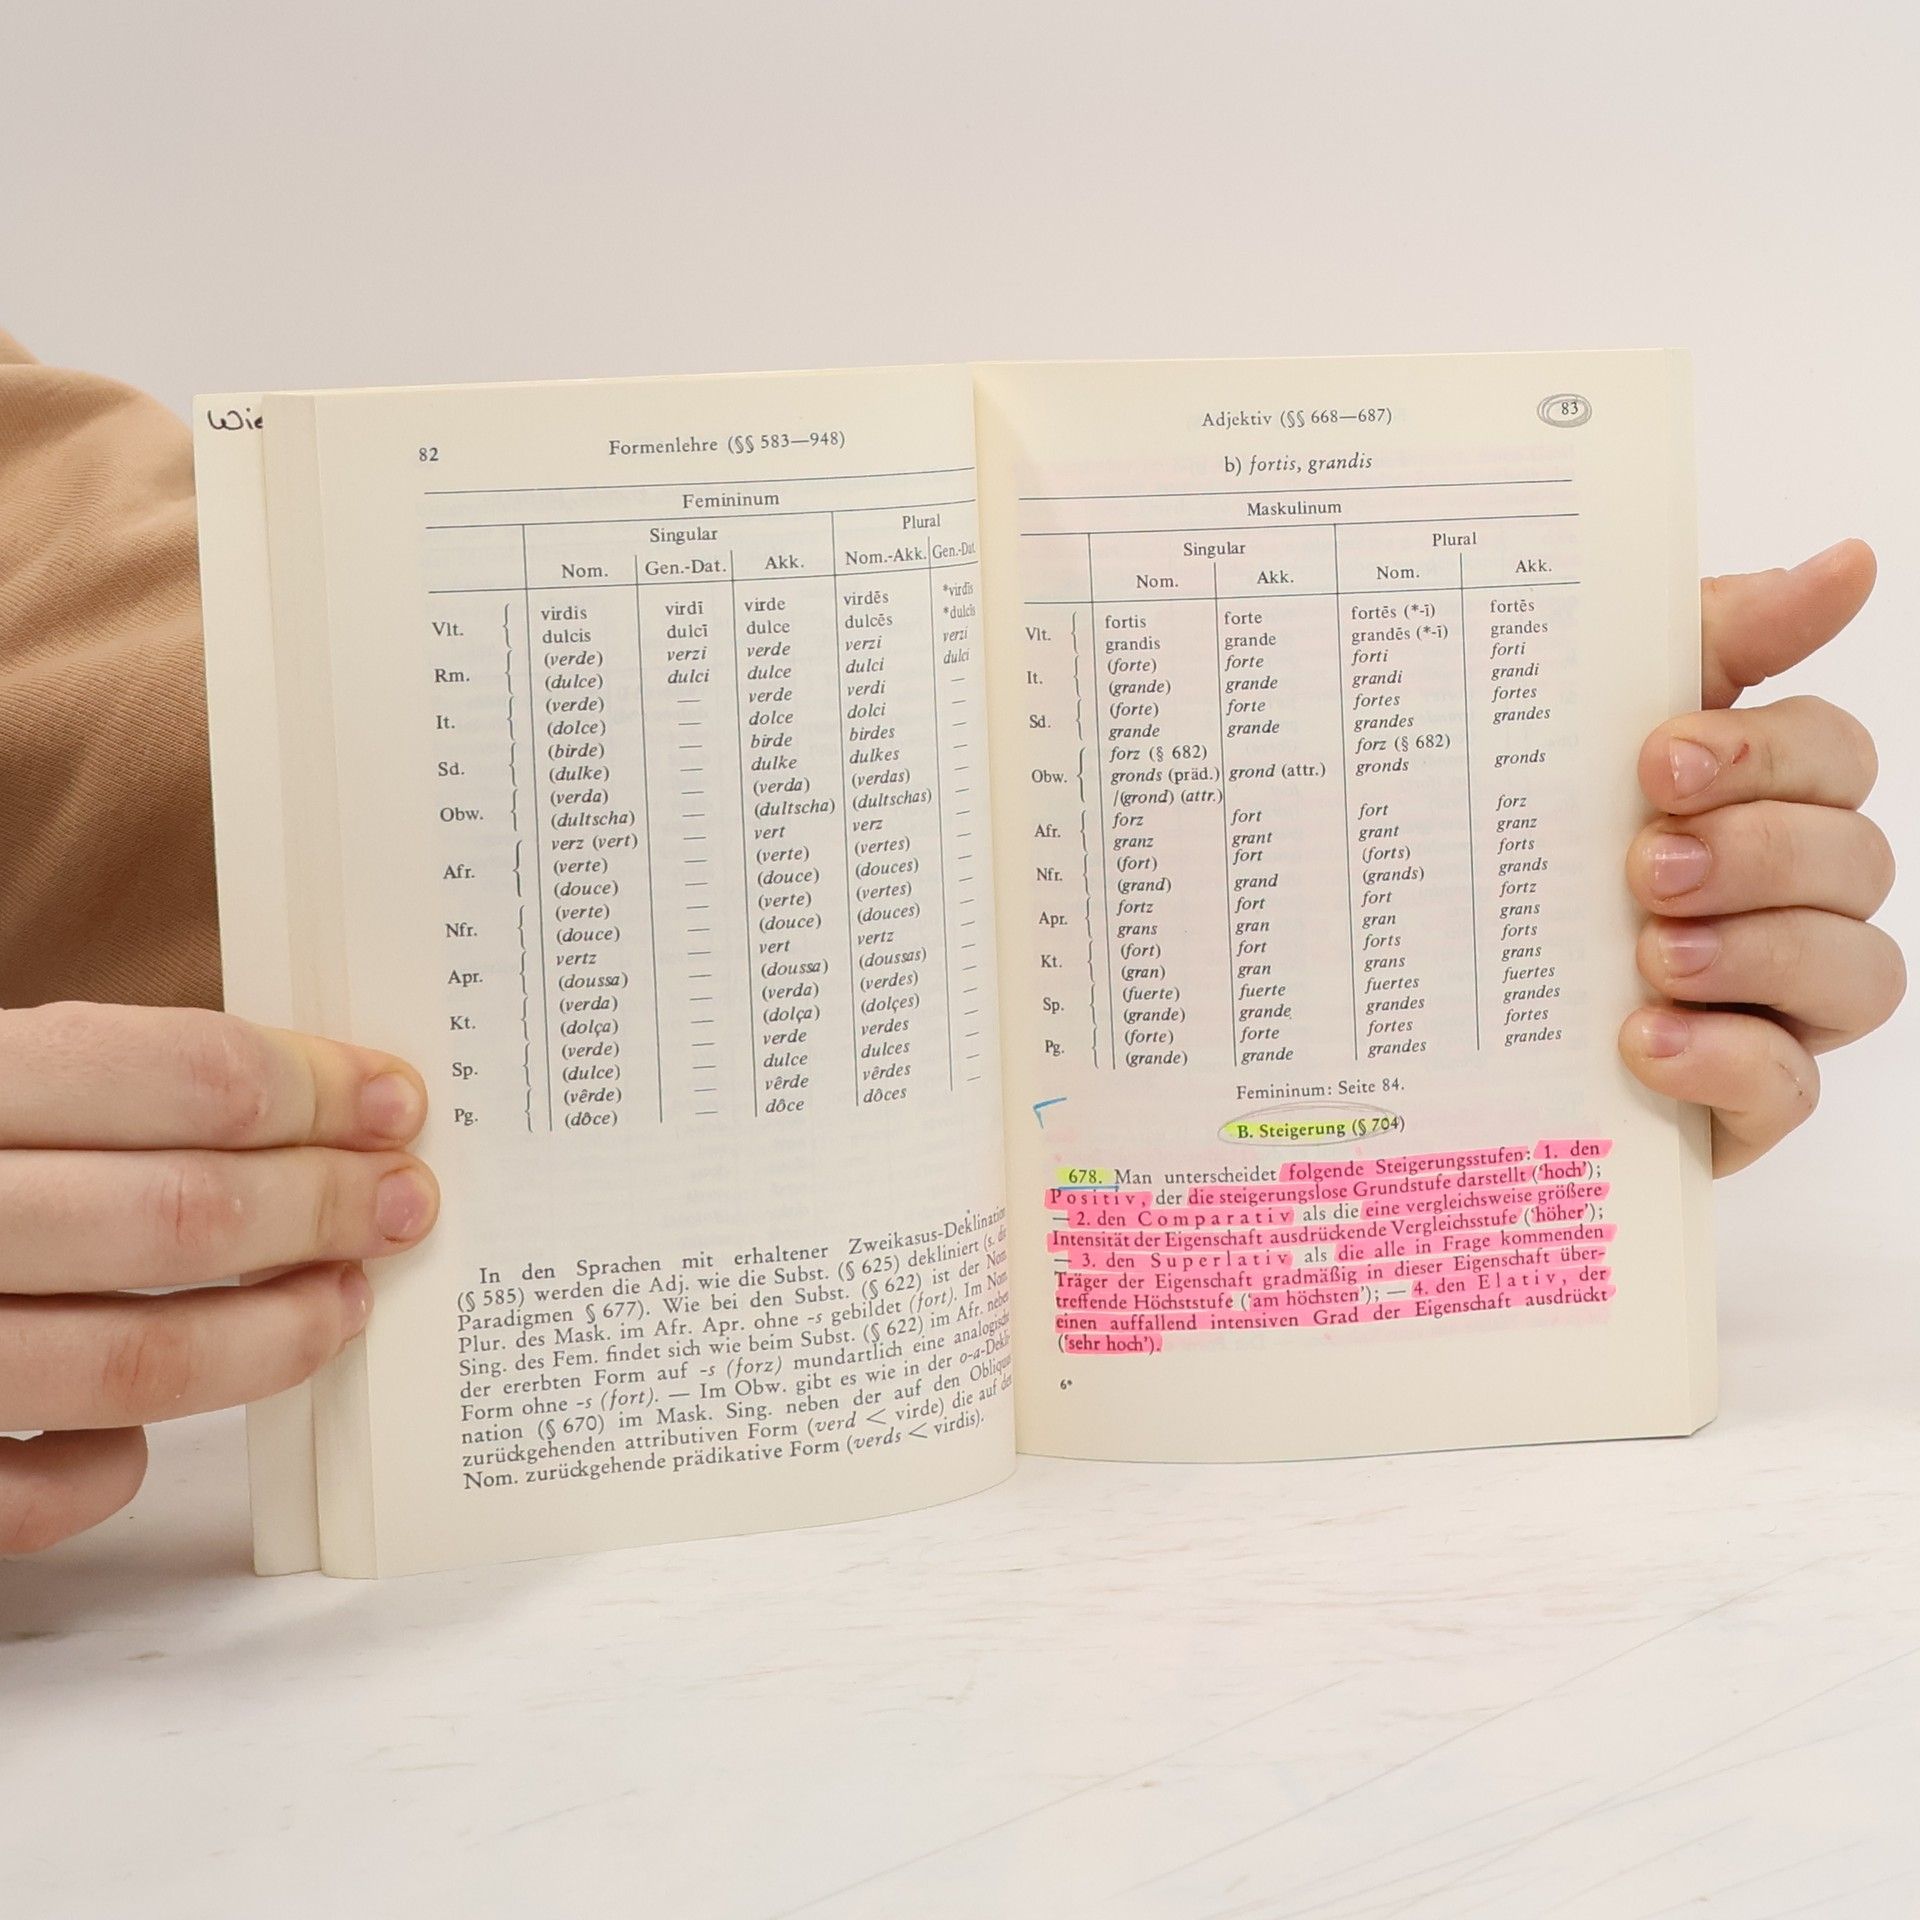 82
Formenlehre (§§ 583—948)
Femininum
Singular Plural
Nom. Gen.-Dat. Akk. Nom.-Akk. Gen.-Dat.
Vlt. virdis virdī virde virdēs *virdīs
dulcis dulcī dulce dulcēs *dulcīs
Rm. (verde) verzi verde verzi verzi
(dulce) dulci dulce dulci dulci
It. (verde) — verde verdi —
(dolce) — dolce dolci —
Sd. (birde) — birde birdes —
(dulke) — dulke dulkes —
Obw. (verda) — (verda) (verdas) —
(dultscha) — (dultscha) (dultschas) —
Afr. verz (vert) — vert verz —
(verte) — (verte) (vertes) —
(douce) — (douce) (douces) —
Nfr. (verte) — (verte) (vertes) —
(douce) — (douce) (douces) —
Apr. vertz — vert vertz —
(doussa) — (doussa) (doussas) —
Kt. (verda) — (verda) (verdes) —
(dolça) — (dolça) (dolçes) —
Sp. (verde) — verde verdes —
(dulce) — dulce dulces —
Pg. (vêrde) — vêrde vêrdes —
(dôce) — dôce dôces —
In den Sprachen mit erhaltener Zweikasus-Deklination
(§ 585) werden die Adj. wie die Subst. (§ 625) dekliniert (s. die
Paradigmen § 677). Wie bei den Subst. (§ 622) ist der Nom.
Plur. des Mask. im Afr. Apr. ohne -s gebildet (fort). Im Nom.
Sing. des Fem. findet sich wie beim Subst. (§ 622) im Afr. neben
der ererbten Form auf -s (forz) mundartlich eine analogische
Form ohne -s (fort). — Im Obw. gibt es wie in der o-a-Dekli-
nation (§ 670) im Mask. Sing. neben der auf den Obliquus
zurückgehenden attributiven Form (verd < virde) die auf den
Nom. zurückgehende prädikative Form (verds < virdis).
Adjektiv (§§ 668—687)
83
b) fortis, grandis
Maskulinum
Singular Plural
Nom. Akk. Nom. Akk.
Vlt. fortis forte fortēs (*-ī) fortēs
grandis grande grandēs (*-ī) grandes
It. (forte) forte forti forti
(grande) grande grandi grandi
Sd. (forte) forte fortes fortes
grande grande grandes grandes
Obw. forz (§ 682) forz (§ 682)
gronds (präd.) grond (attr.) gronds gronds
/(grond) (attr.)
Afr. forz fort fort forz
granz grant grant granz
Nfr. (fort) fort (forts) forts
(grand) grand (grands) grands
Apr. fortz fort fort fortz
grans gran gran grans
Kt. (fort) fort forts forts
(gran) gran grans grans
Sp. (fuerte) fuerte fuertes fuertes
(grande) grande grandes grandes
Pg. (forte) forte fortes fortes
(grande) grande grandes grandes
Femininum: Seite 84.
B. Steigerung (§ 704)
678. Man unterscheidet folgende Steigerungsstufen: 1. den
Positiv, der die steigerungslose Grundstufe darstellt (‘hoch’);
— 2. den Comparativ als die eine vergleichsweise größere
Intensität der Eigenschaft ausdrückende Vergleichsstufe (‘höher’);
— 3. den Superlativ als die alle in Frage kommenden
Träger der Eigenschaft gradmäßig in dieser Eigenschaft über-
treffende Höchststufe (‘am höchsten’); — 4. den Elativ, der
einen auffallend intensiven Grad der Eigenschaft ausdrückt
(‘sehr hoch’).
6*